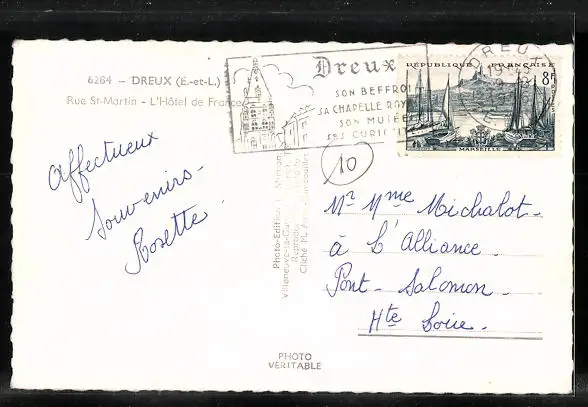 6284 – DREUX (E.-et-L.)
Rue St-Martin - L'Hôtel de France
Dreux
SON BEFFROI
SA CHAPELLE ROYALE
SON MUSÉE
SES CURIOSITÉS
DREUX
RÉPUBLIQUE FRANÇAISE
8F
MARSEILLE
10
Affectueux
Souvenirs-
Rosette
Photo-Edition
Villeneuve-la-Garenne
Cliché M.
Mr Mme Michalot-
à L'Alliance.
Pont- Salomon.
Hte Loire.
PHOTO
VERITABLE